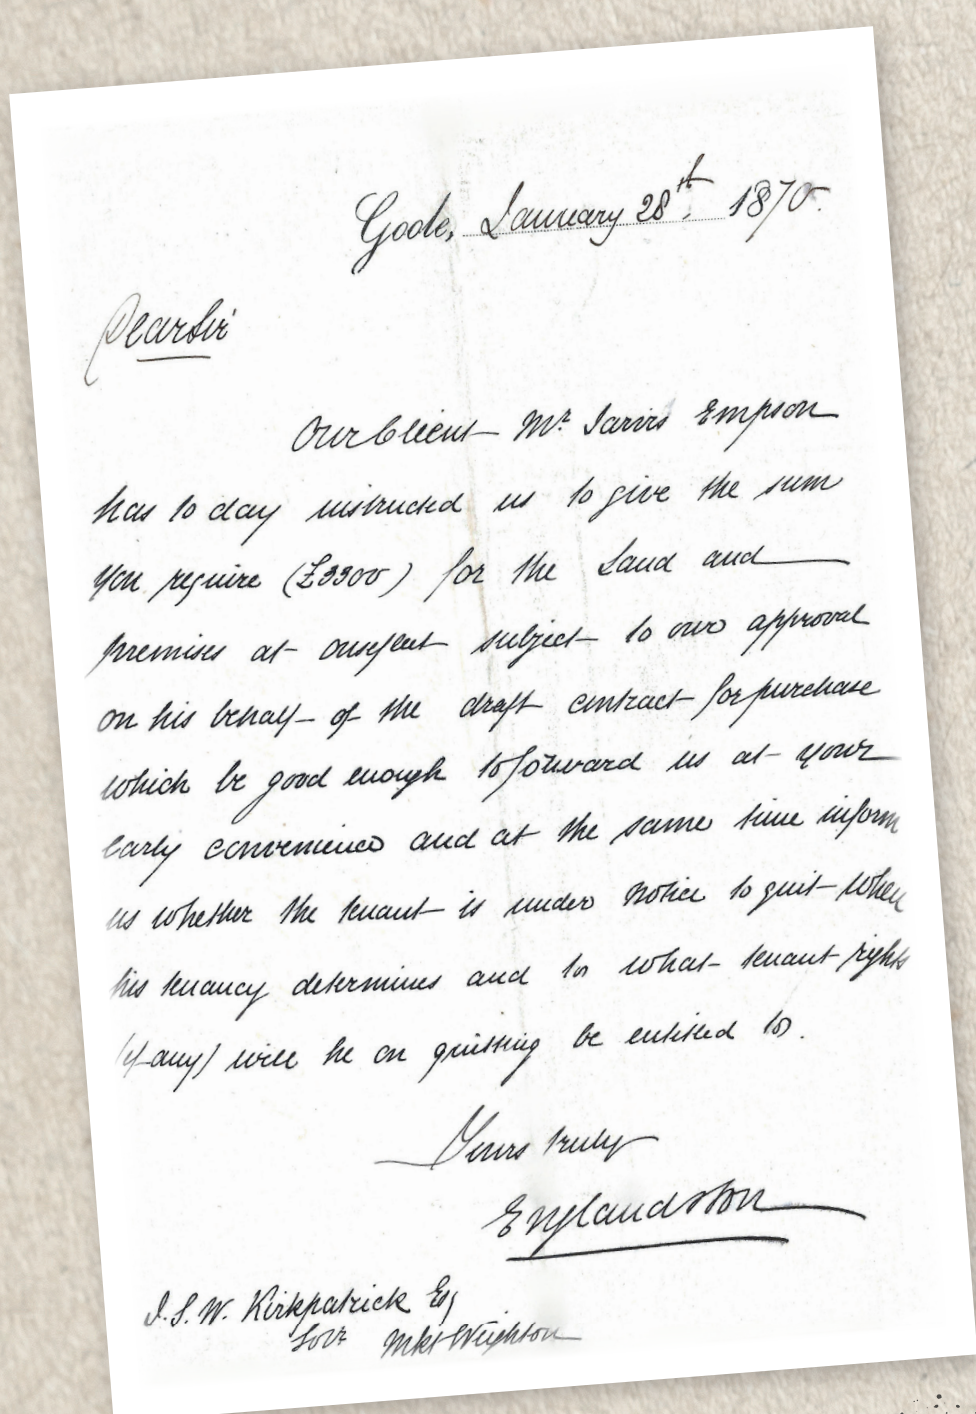 Goole, January 28th. 1870.
Dear Sir
Our Client Mr. Jarvis Empson
has to day instructed us to give the sum
you require (£3300) for the Land and
premises at Ousefleet subject to our approval
on his behalf of the draft contract for purchase
which be good enough to forward us at your
early convenience and at the same time inform
us whether the tenant is under notice to quit when
his tenancy determines and to what tenant rights
(if any) will he on quitting be entitled to.
Yours truly
England & Son
J. S. W. Kirkpatrick Esq
Solr Mkt Weighton